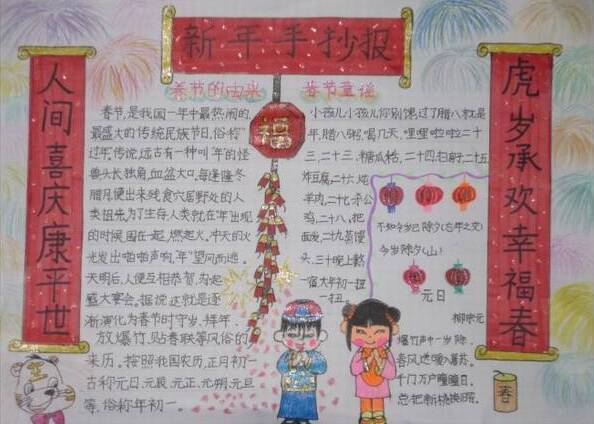 新年手抄报
人间喜庆康平世
虎岁承欢幸福春
春节的由来
春节，是我国一年中最热闹的、
最盛大的传统民族节日，俗称"
过年"，传说，远古有一种叫"年"的怪
兽头长独角，血盆大口，每逢隆冬
腊月便出来残食穴居野处的人
类祖先，为了生存，人类就在"年"出现
的时候，围在一起，燃起火。冲天的火
光发出啪啪声响，"年"望风而逃。
天明后，人便互相恭贺，为起
盛大宴会。据说，这就是逐
渐演化为春节时守岁、拜年、
放爆竹、贴春联等风俗的
来历。按照我国农历，正月初一
古称元日、元辰、元正、元朔、元旦
等，俗称年初一。
福
春节童谣
小孩儿小孩儿你别馋，过了腊八就是
年，腊八粥，喝几天，哩哩啦啦二十
三，二十三，糖瓜粘，二十四扫房子，二十五
炸豆腐，二十六，炖
羊肉，二十七，杀公
鸡，二十八，把
面发，二十九蒸馒
头，三十晚上熬一
宿大年初一扭
一扭。
不如今当已除夕(忘年之交)
今岁除夕(山)
元日
柳宗元
爆竹声中一岁除，
春风送暖入屠苏。
千门万户曈曈日，
总把新桃换旧符。
春